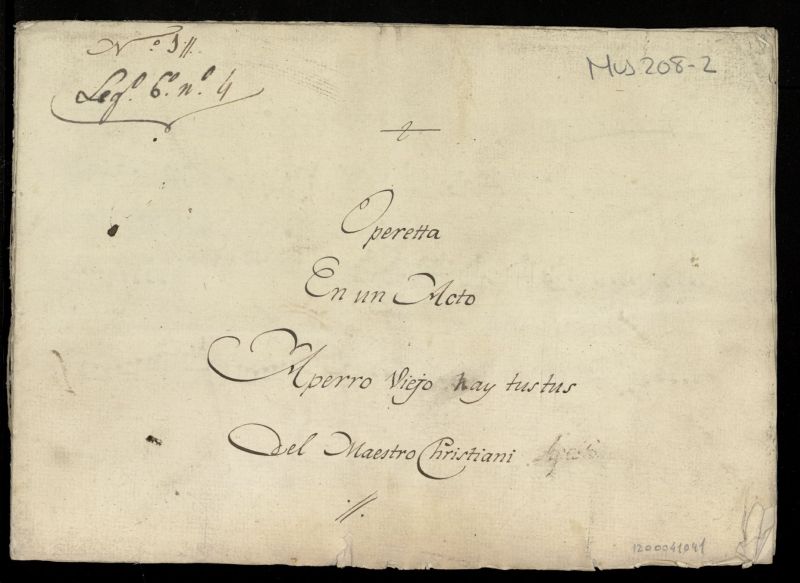 N.º 1 //.
Leg.º 6.º n.º 4
Mus 208-2
Operetta
En un Acto
Aperro Viejo hay tustus
Del Maestro Christiani
//.
1200041041